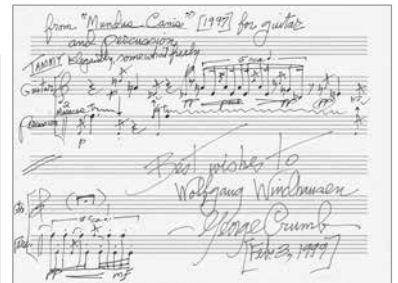 from "Mundus Canis" [1997] for guitar
and percussion
TAMMY Elegantly, somewhat freely
Guitar
Maracas
Percussion
p
Best wishes to
Wolfgang Windhausen
George Crumb
[Feb. 3, 1999]
mf